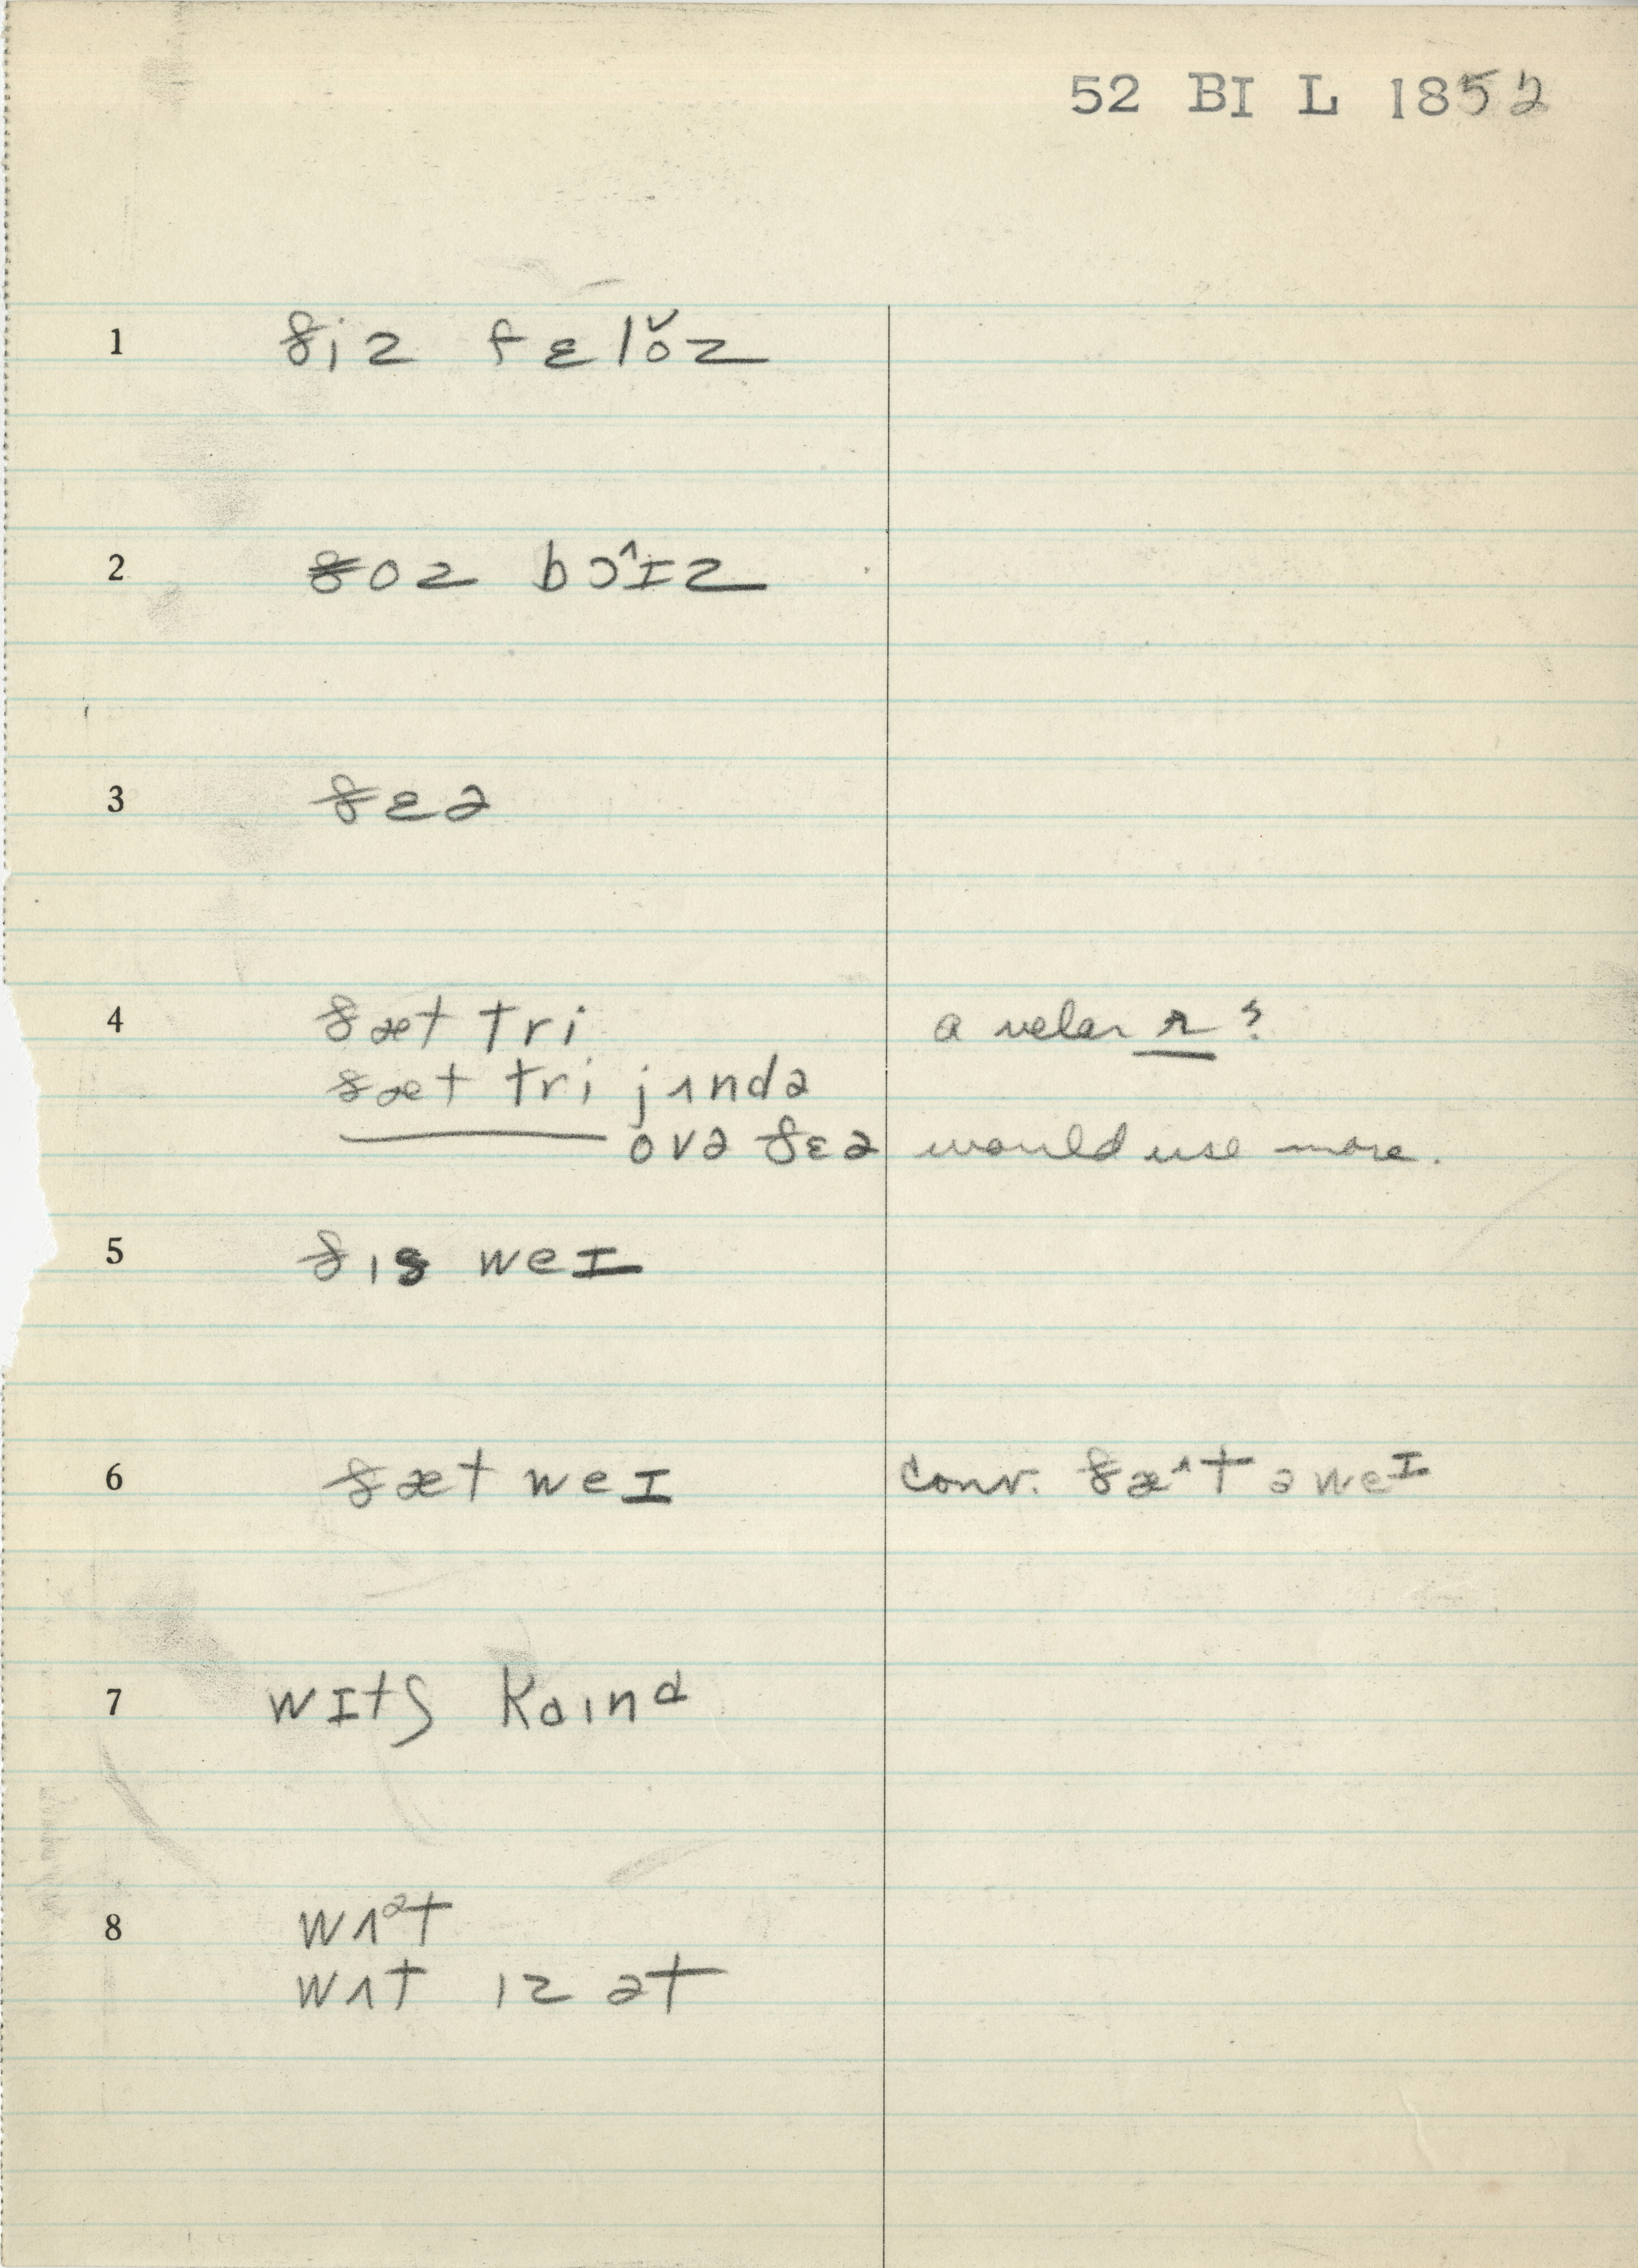 52 BI L 1852
1 ðiz fɛlo̬z
2 ðoz bɔ^ɪz
3 ðɛə
4 ðæt tri a velar r?
ðæt tri jʌndə
——— ovə ðɛə would use more.
5 ðɪs weɪ
6 ðæt weɪ conv. ðæ^t ə weɪ
7 wɪtʃ kaɪnd
8 wʌᵊt
wʌt ɪz ət